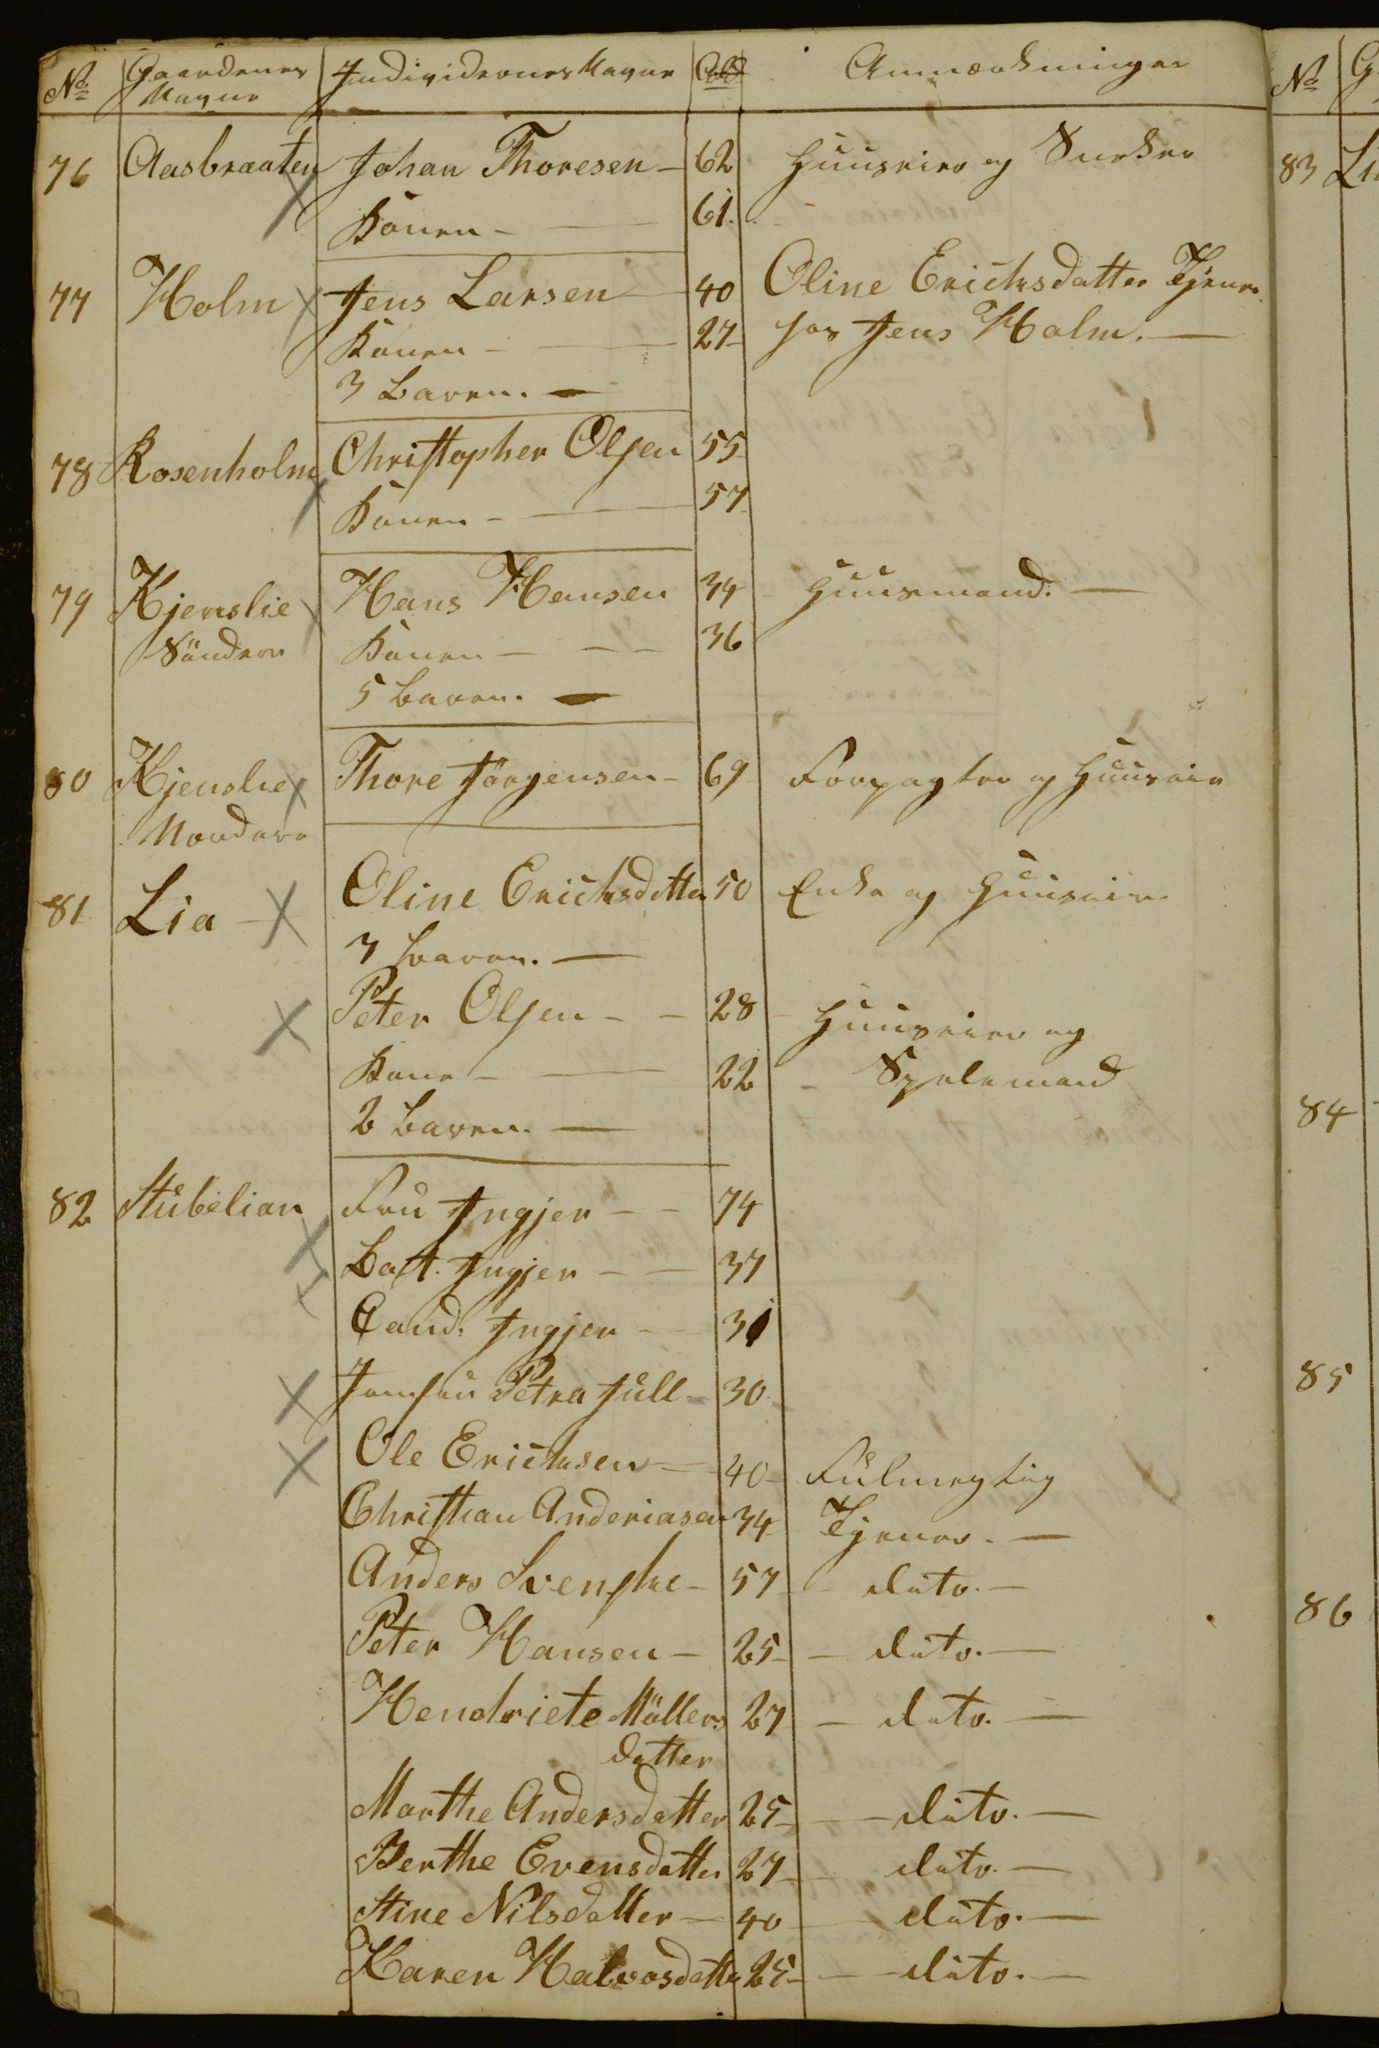 No. Gaardenes Navne Individernes Navne Ald Anmærkninger
76 Aasbraaten Johan Thoresen - 62 Huuseier og Sneker
Konen - 61.
77 Holm Jens Larsen 40 Oline Erichsdatter Tjener
Konen - 27 hos Jens Holm. -
3 Børen. -
78 Rosenholm Christopher Olsen 55
Konen - 57
79 Kjenslie Hans Hansen 34 Huusmand. -
Söndere Konen - - - 36
5 Børen. -
80 Kjenslie Thore Jörgensen - 69 Forpagter og Huuseier
Nordere
81 Lia - Oline Erichsdatter 50 Enke og Huuseier
3 Børen. -
Peter Olsen - - 28 Huuseier og
Kone - 22 - Spelemand
2 Børen. -
82 Stubelian Fru Ingjer - - 74
Bat. Ingjer - - 37
Cand. Ingjer - 31
Jomfru Petra Jull - 30
Ole Erichsen - 40 - Fulmegtig
Christian Anderiasen 34 Tjener. -
Anders Svenske - 57 - dito. -
Peter Hansen - 25 - - dito. -
Hendriete Möllers 27 - dito. -
datter
Marthe Andersdatter 25 - - dito. -
Berthe Evensdatter 27 - - dito. -
Stine Nilsdatter - 40 - dito. -
Karen Halvosdatter 25 - - dito. -
No. G
83 Li
84
85
86